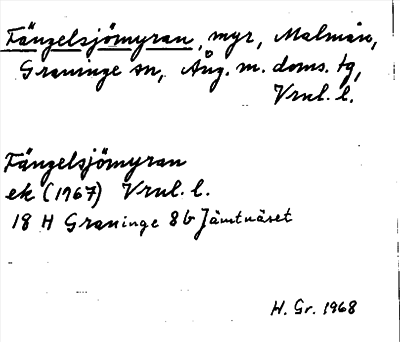 Fängelsjömyran, myr, Malmån,
Graninge sn, Ång. m. doms. tg,
Vrnl. l.
Fängelsjömyran
ek (1967) Vrnl. l.
18 H Graninge 8b Jämtnäset
H. Gr. 1968